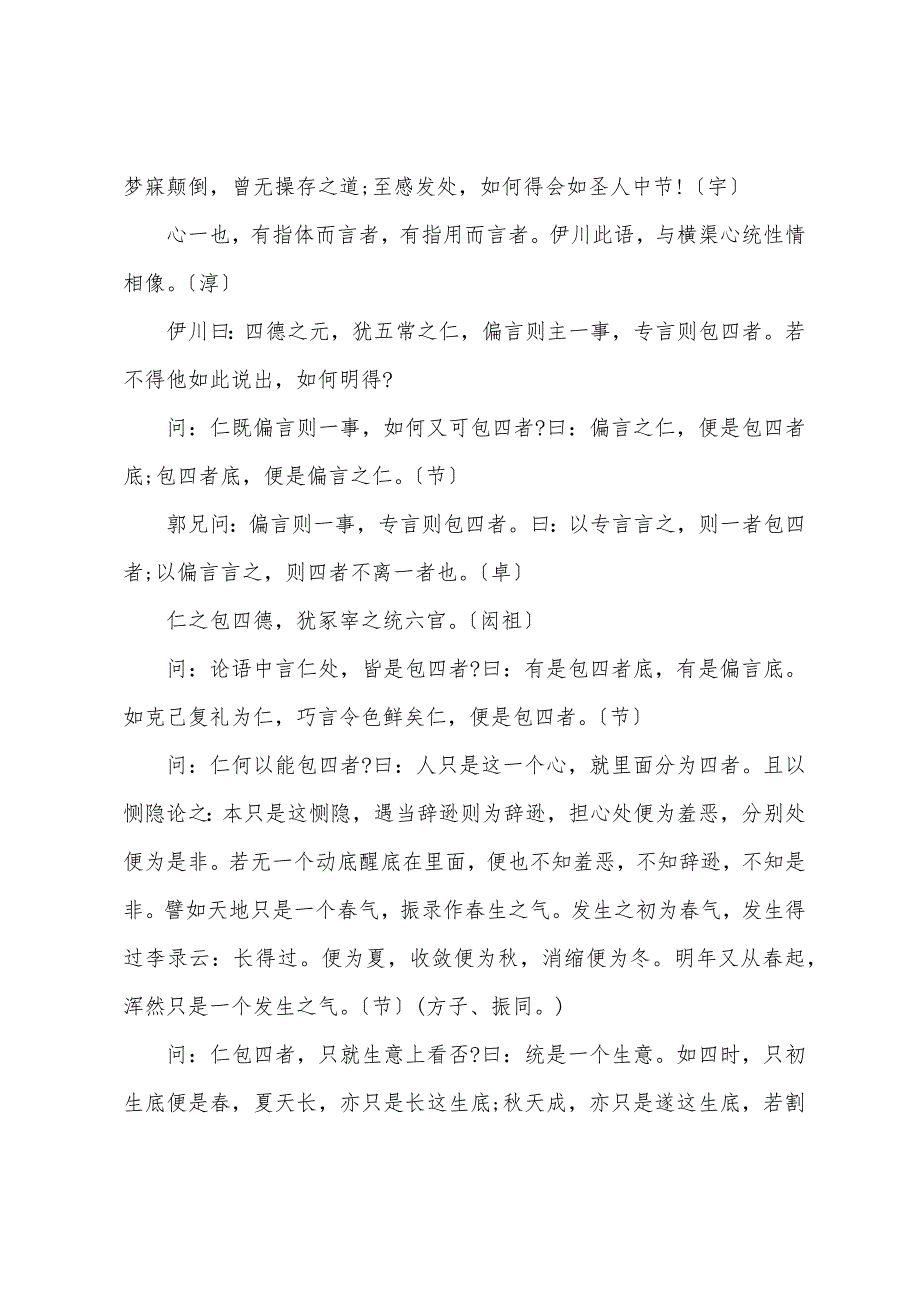 梦寐颠倒，曾无操存之道;至感发处，如何得会如圣人中节!〔宇〕
心一也，有指体而言者，有指用而言者。伊川此语，与横渠心统性情
相像。〔淳〕
伊川曰：四德之元，犹五常之仁，偏言则主一事，专言则包四者。若
不得他如此说出，如何明得?
问：仁既偏言则一事，如何又可包四者?曰：偏言之仁，便是包四者
底;包四者底，便是偏言之仁。〔节〕
郭兄问：偏言则一事，专言则包四者。曰：以专言言之，则一者包四
者;以偏言言之，则四者不离一者也。〔卓〕
仁之包四德，犹冢宰之统六官。〔闳祖〕
问：论语中言仁处，皆是包四者?曰：有是包四者底，有是偏言底。
如克己复礼为仁，巧言令色鲜矣仁，便是包四者。〔节〕
问：仁何以能包四者?曰：人只是这一个心，就里面分为四者。且以
恻隐论之：本只是这恻隐，遇当辞逊则为辞逊，担心处便为羞恶，分别处
便为是非。若无一个动底醒底在里面，便也不知羞恶，不知辞逊，不知是
非。譬如天地只是一个春气，振录作春生之气。发生之初为春气，发生得
过李录云：长得过。便为夏，收敛便为秋，消缩便为冬。明年又从春起，
浑然只是一个发生之气。〔节〕(方子、振同。)
问：仁包四者，只就生意上看否?曰：统是一个生意。如四时，只初
生底便是春，夏天长，亦只是长这生底;秋天成，亦只是遂这生底，若割